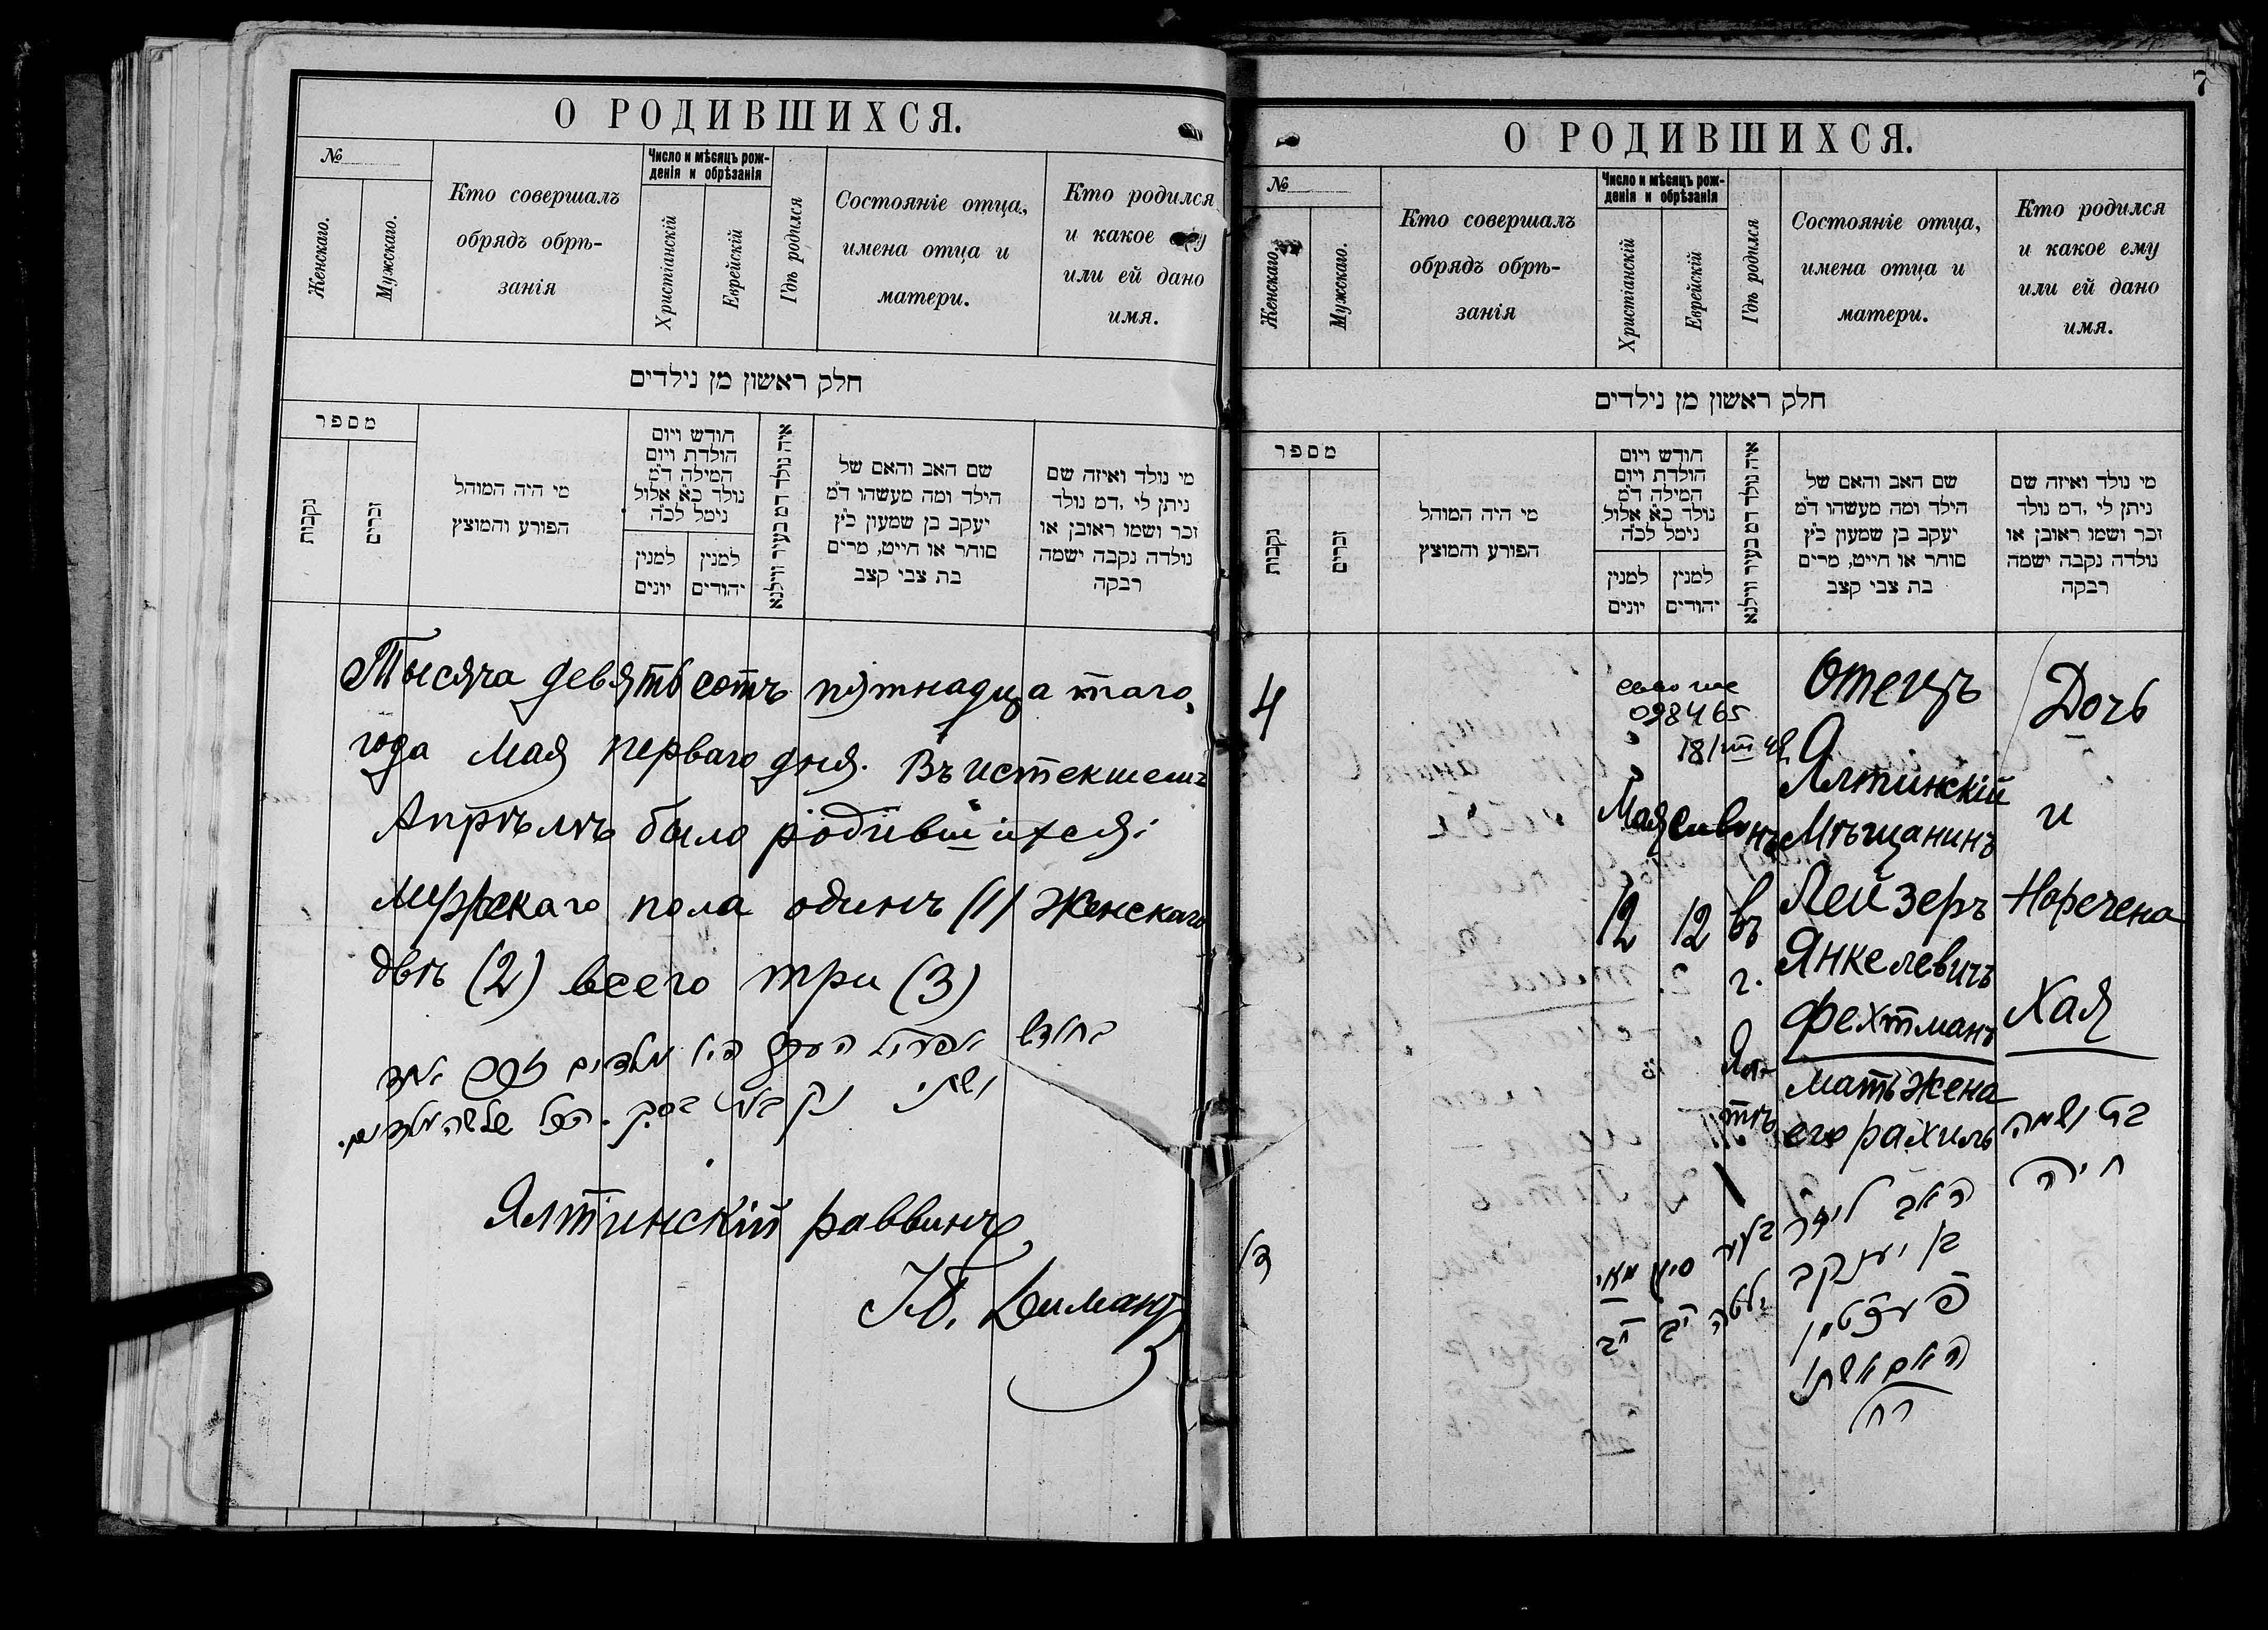 О РОДИВШИХСЯ.
№
Женскаго.
Мужскаго.
Кто совершалъ
обрядъ обрѣ-
занія
Число и мѣсяцъ рож-
денія и обрѣзанія
Христіанскій
Еврейскій
Гдѣ родился
Состояніе отца,
имена отца и
матери.
Кто родился
и какое ему
или ей дано
имя.
חלק ראשון מן נילדים
מספר
נקבות
זכרים
מי היה המוהל
הפורע והמוצץ
חודש ויום
הולדת ויום
המילה ד"מ
נולד כ"א אלול
נימל לכ"ה
למנין
יונים
למנין
יהודים
איה נולד דמ בעיר ווילנא
שם האב והאם של
הילד ומה מעשהו ד"מ
יעקב בן שמעון כ"ץ
סוחר או חייט, מרים
בת צבי קצב
מי נולד ואיזה שם
ניתן לי ,דמ נולד
זכר ושמו ראובן או
נולדה נקבה ישמה
רבקה
Тысяча девятьсотъ пятнадцатаго
года Мая перваго дня. Въ истекшемъ
Апрѣлѣ было родившихся:
Мужскаго пола одинъ (1) Женскаго
двѣ (2) всего три (3)
Ялтинскій раввинъ
7
О РОДИВШИХСЯ.
№
Женскаго.
Мужскаго.
Кто совершалъ
обрядъ обрѣ-
занія
Число и мѣсяцъ рож-
денія и обрѣзанія
Христіанскій
Еврейскій
Гдѣ родился
Состояніе отца,
имена отца и
матери.
Кто родился
и какое ему
или ей дано
имя.
חלק ראשון מן נילדים
מספר
נקבות
זכרים
מי היה המוהל
הפורע והמוצץ
חודש ויום
הולדת ויום
המילה ד"מ
נולד כ"א אלול
נימל לכ"ה
למנין
יונים
למנין
יהודים
איה נולד דמ בעיר ווילנא
שם האב והאם של
הילד ומה מעשהו ד"מ
יעקב בן שמעון כ"ץ
סוחר או חייט, מרים
בת צבי קצב
מי נולד ואיזה שם
ניתן לי ,דמ נולד
זכר ושמו ראובן או
נולדה נקבה ישמה
רבקה
4
098465
Мая
12
Сивонъ
12
въ
г.
Ял
тѣ
Отецъ
Ялтинскій
Мѣщанинъ
Лейзеръ
Янкелевичъ
Фехтманъ
мать жена
его Рахиль
Дочь
и
Наречена
Хая
האב ליזר
בן יעקב
פעכטמן
האם אשתו
רחל
בת ושמה
חיה